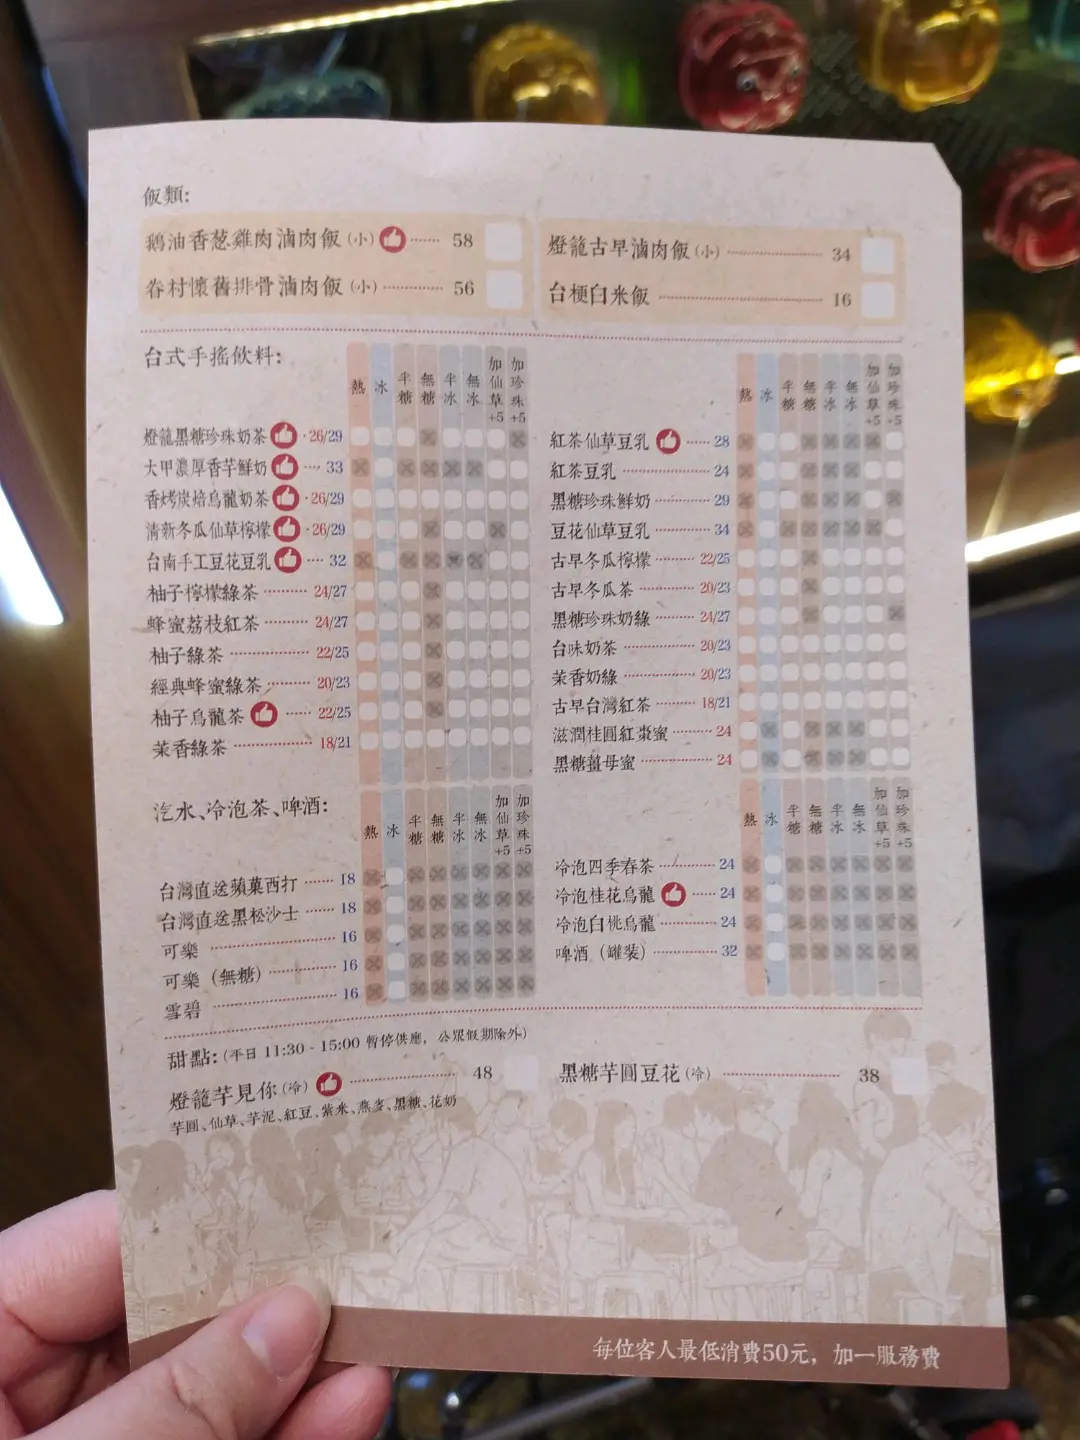 飯類:
鵝油香葱雞肉滷肉飯(小) 58
眷村懷舊排骨滷肉飯(小) 56
燈籠古早滷肉飯(小) 34
台梗白米飯 16
台式手搖飲料:
熱 冰 半糖 無糖 半冰 無冰 加仙草+5 加珍珠+5
燈籠黑糖珍珠奶茶 26/29
大甲濃厚香芋鮮奶 33
香烤炭焙烏龍奶茶 26/29
清新冬瓜仙草檸檬 26/29
台南手工豆花豆乳 32
柚子檸檬綠茶 24/27
蜂蜜荔枝紅茶 24/27
柚子綠茶 22/25
經典蜂蜜綠茶 20/23
柚子烏龍茶 22/25
茉香綠茶 18/21
熱 冰 半糖 無糖 半冰 無冰 加仙草+5 加珍珠+5
紅茶仙草豆乳 28
紅茶豆乳 24
黑糖珍珠鮮奶 29
豆花仙草豆乳 34
古早冬瓜檸檬 22/25
古早冬瓜茶 20/23
黑糖珍珠奶綠 24/27
台味奶茶 20/23
茉香奶綠 20/23
古早台灣紅茶 18/21
滋潤桂圓紅棗蜜 24
黑糖薑母蜜 24
汽水、冷泡茶、啤酒:
熱 冰 半糖 無糖 半冰 無冰 加仙草+5 加珍珠+5
台灣直送蘋菓西打 18
台灣直送黑松沙士 18
可樂 16
可樂(無糖) 16
雪碧 16
熱 冰 半糖 無糖 半冰 無冰 加仙草+5 加珍珠+5
冷泡四季春茶 24
冷泡桂花烏龍 24
冷泡白桃烏龍 24
啤酒(罐裝) 32
甜點:(平日 11:30 - 15:00 暫停供應，公眾假期除外)
燈籠芋見你(冷) 48
芋圓、仙草、芋泥、紅豆、紫米、燕麥、黑糖、花奶
黑糖芋圓豆花(冷) 38
每位客人最低消費50元，加一服務費